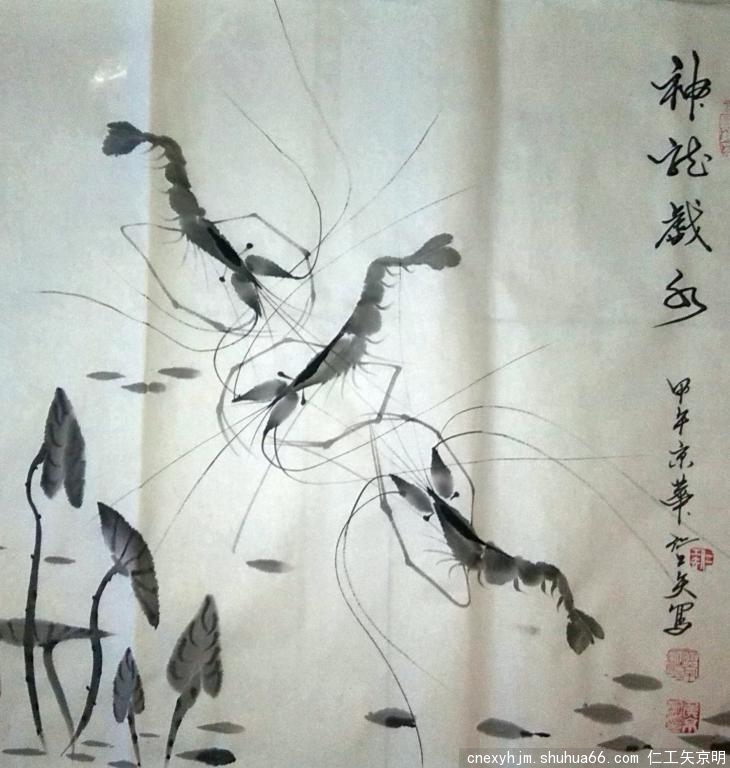 神龍戲水
甲午京華仁工矢寫
cnexyhjm.shuhua66.com 仁工矢京明